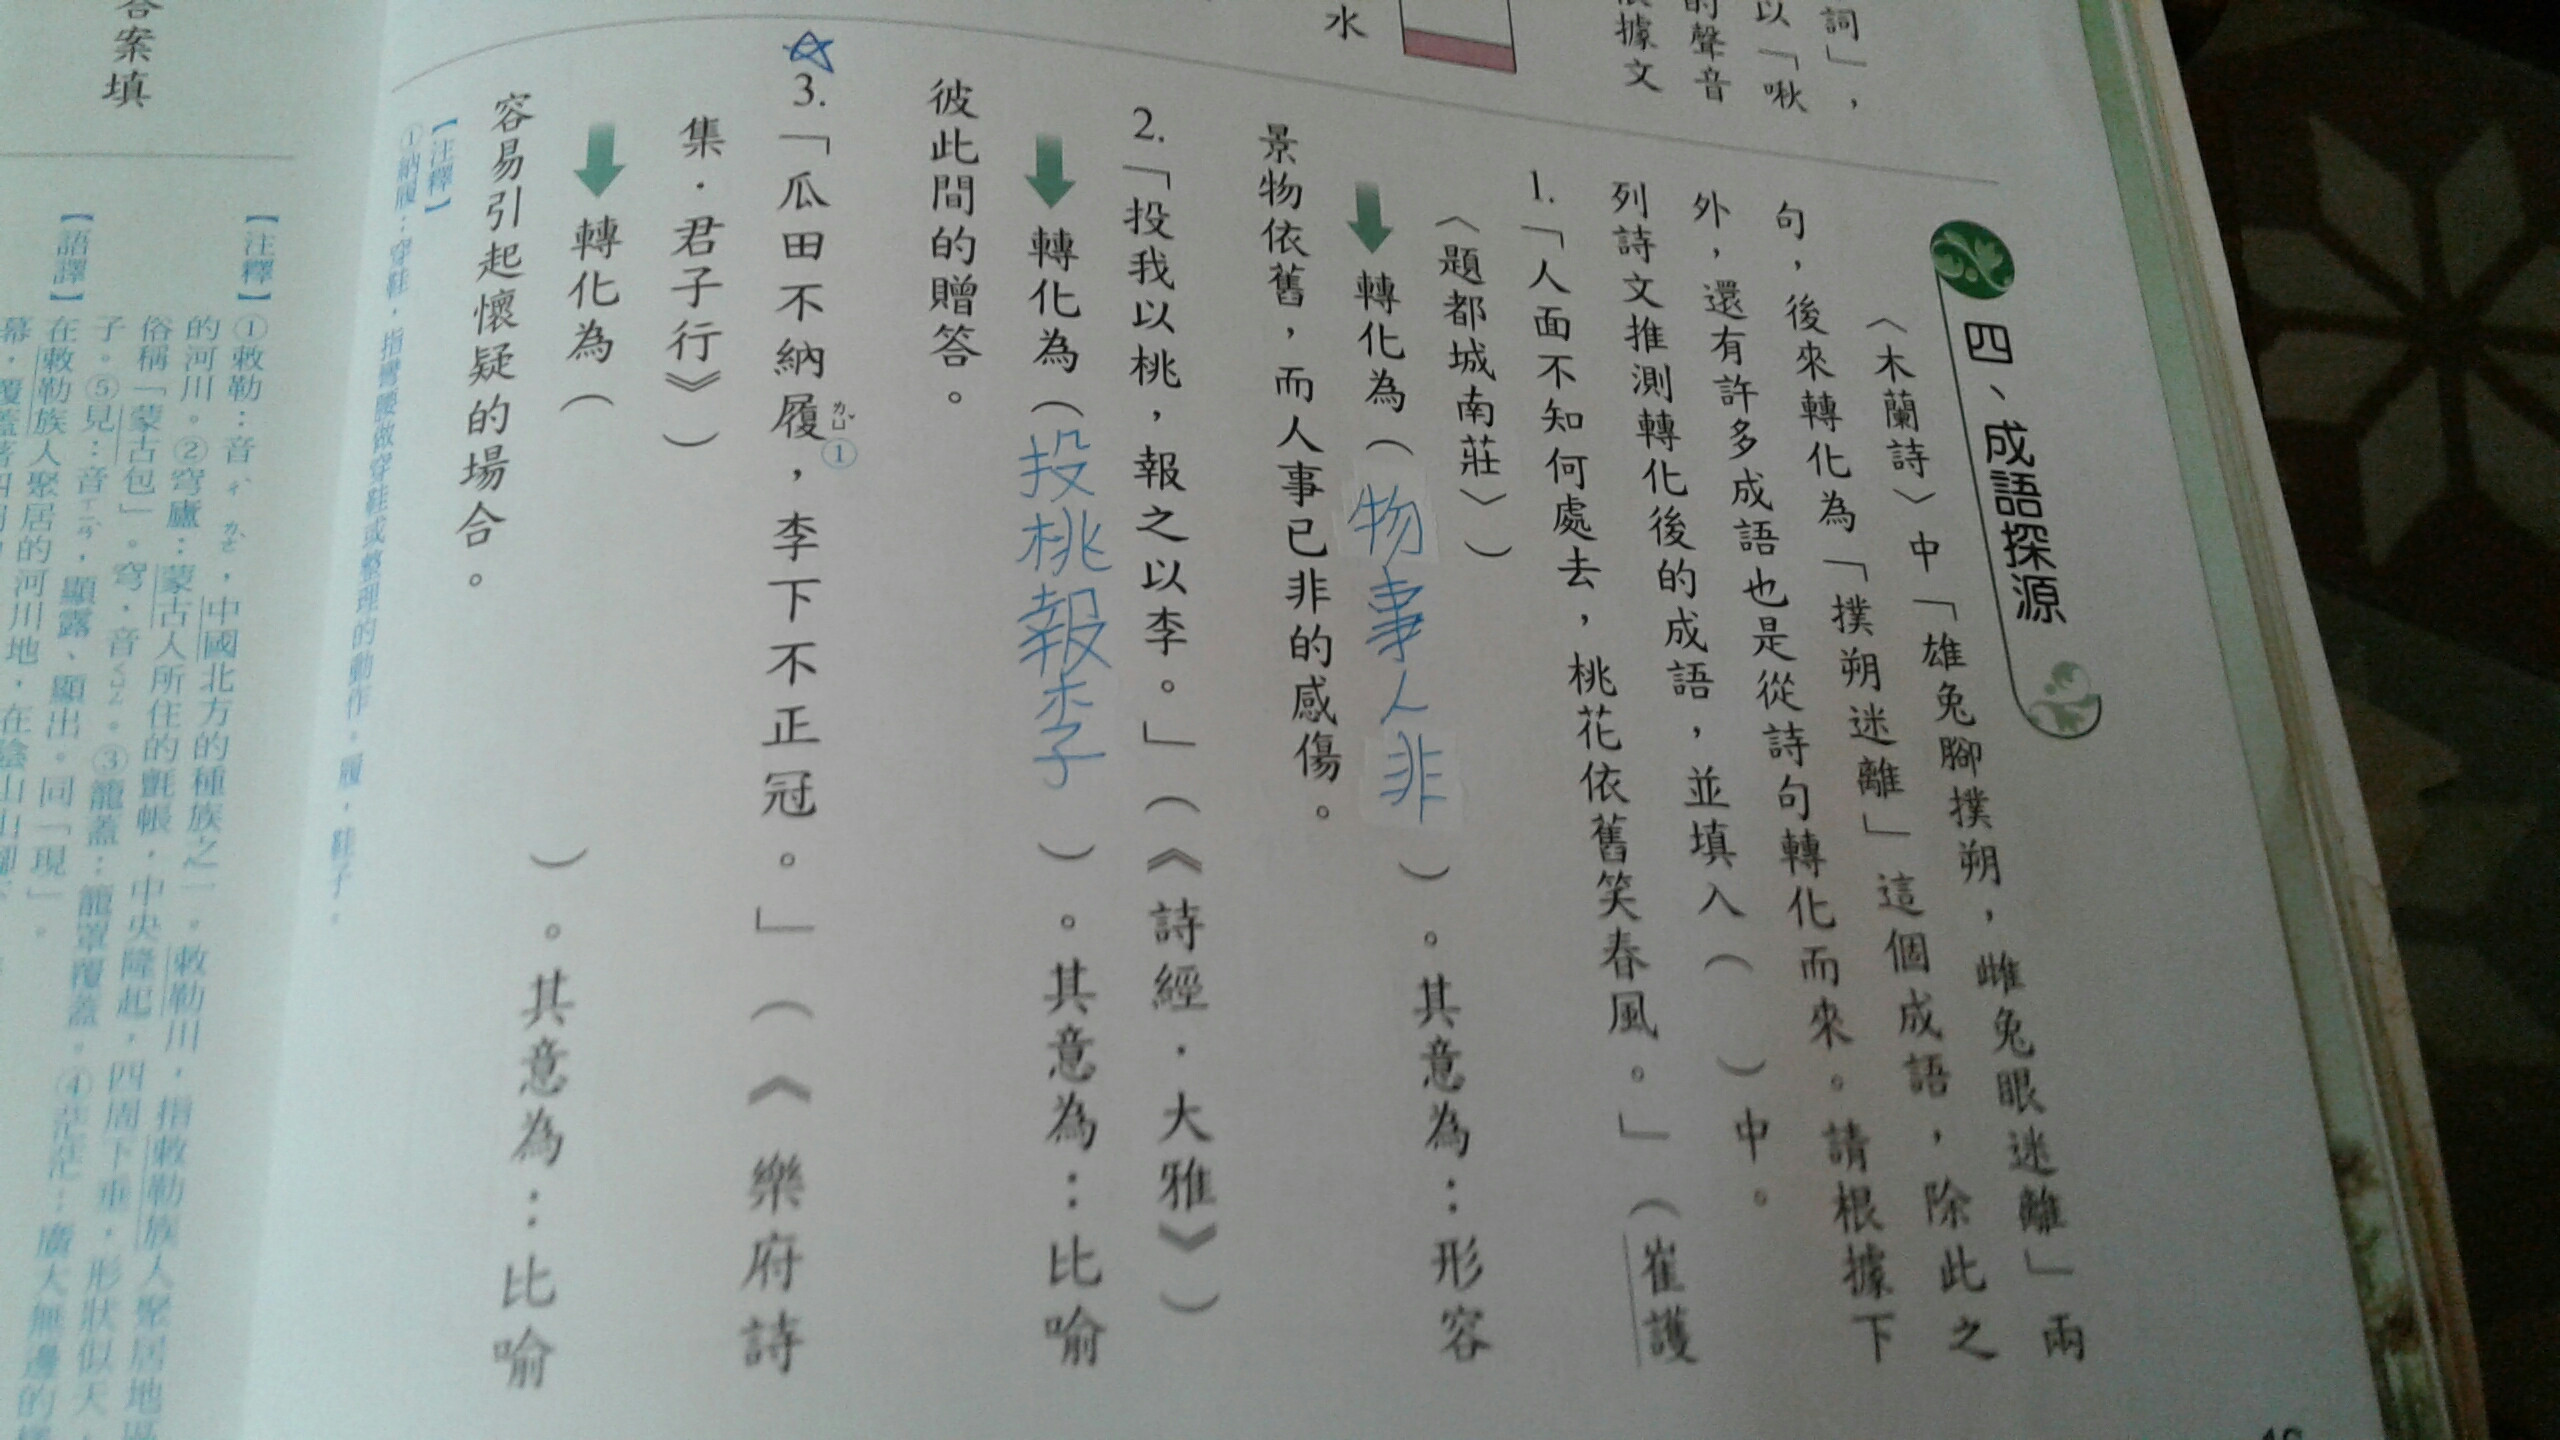 詞」，
以「啾
的聲音
據文
水
四、成語探源
〈木蘭詩〉中「雄兔腳撲朔，雌兔眼迷離」兩
句，後來轉化為「撲朔迷離」這個成語，除此之
外，還有許多成語也是從詩句轉化而來。請根據下
列詩文推測轉化後的成語，並填入（　）中。
1.「人面不知何處去，桃花依舊笑春風。」（崔護
〈題都城南莊〉）
轉化為（物事人非）。其意為：形容
景物依舊，而人事已非的感傷。
2.「投我以桃，報之以李。」（《詩經．大雅》）
轉化為（投桃報李）。其意為：比喻
彼此間的贈答。
3.「瓜田不納履ㄌㄩˇ①，李下不正冠。」（《樂府詩
集．君子行》）
轉化為（　）。其意為：比喻
容易引起懷疑的場合。
【注釋】
①納履：穿鞋，指彎腰做穿鞋或整理的動作。履，鞋子。
答案填
【注釋】①敕勒：音ㄔˋ ㄌㄜˋ，中國北方的種族之一。敕勒川，指敕勒族人聚居地區
的河川。②穹廬：蒙古人所住的氈帳，中央隆起，四周下垂，形狀似天，
俗稱「蒙古包」。穹，音ㄑㄩㄥˊ。③籠蓋：籠罩覆蓋。④茫茫：廣大無邊的
子。⑤見：音ㄒㄧㄢˋ，顯露、顯出。同「現」。
【語譯】在敕勒族人聚居的河川地，在陰山山腳下
幕，覆蓋著四周